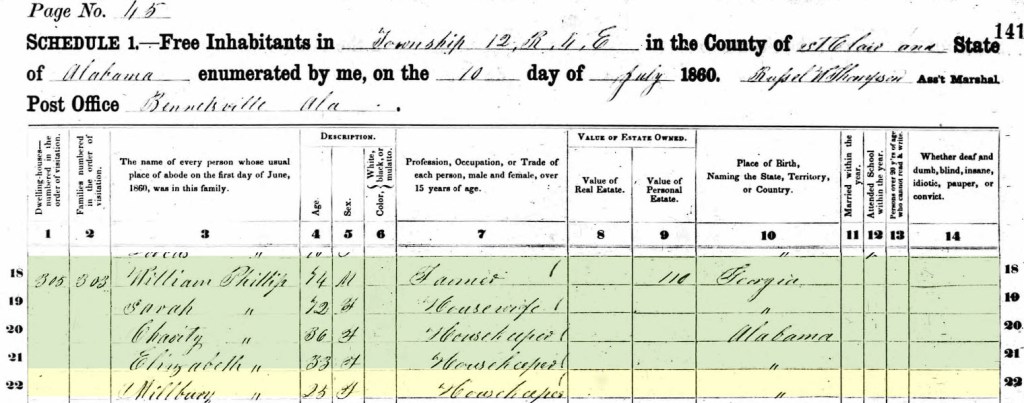 Page No. 45
141
SCHEDULE 1.—Free Inhabitants in Township 12, R 4 E in the County of St Clair and State
of Alabama enumerated by me, on the 10 day of July 1860. Russel W Thompson Ass't Marshal.
Post Office Bennettsville Ala
Dwelling-houses—numbered in the order of visitation.
Families numbered in the order of visitation.
The name of every person whose usual place of abode on the first day of June, 1860, was in this family.
DESCRIPTION.
Age.
Sex.
Color, White, black, or mulatto.
Profession, Occupation, or Trade of each person, male and female, over 15 years of age.
VALUE OF ESTATE OWNED.
Value of Real Estate.
Value of Personal Estate.
Place of Birth, Naming the State, Territory, or Country.
Married within the year.
Attended School within the year.
Persons over 20 y'rs of age who cannot read & write.
Whether deaf and dumb, blind, insane, idiotic, pauper, or convict.
1 2 3 4 5 6 7 8 9 10 11 12 13 14
18 305 303 William Phillip 74 M Farmer 110 Georgia 18
19 Sarah " 72 F Housewife " 19
20 Charity " 36 F Housekeeper Alabama 20
21 Elizabeth " 33 F Housekeeper " 21
22 Millbury " 25 F Housekeeper " 22